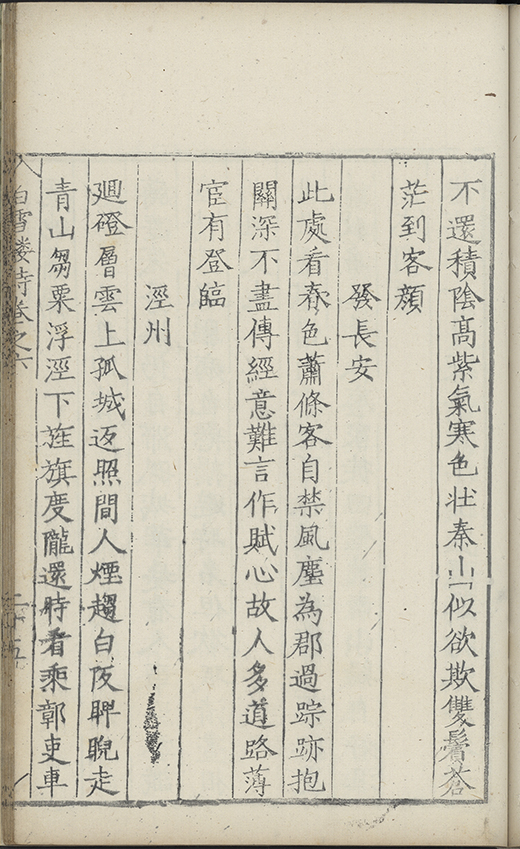 不還積陰高紫氣寒色壯秦山似欲欺雙鬢蒼
茫到客顏
發長安
此處看春色蕭條客自禁風塵為郡過踪跡抱
關深不盡傳經意難言作賦心故人多道路薄
宦有登臨
涇州
廻磴層雲上孤城返照間人煙趨白阪睥睨走
青山芻粟浮涇下旌旗度隴還時看乘鄣吏車
白雪樓詩卷之六
二十五